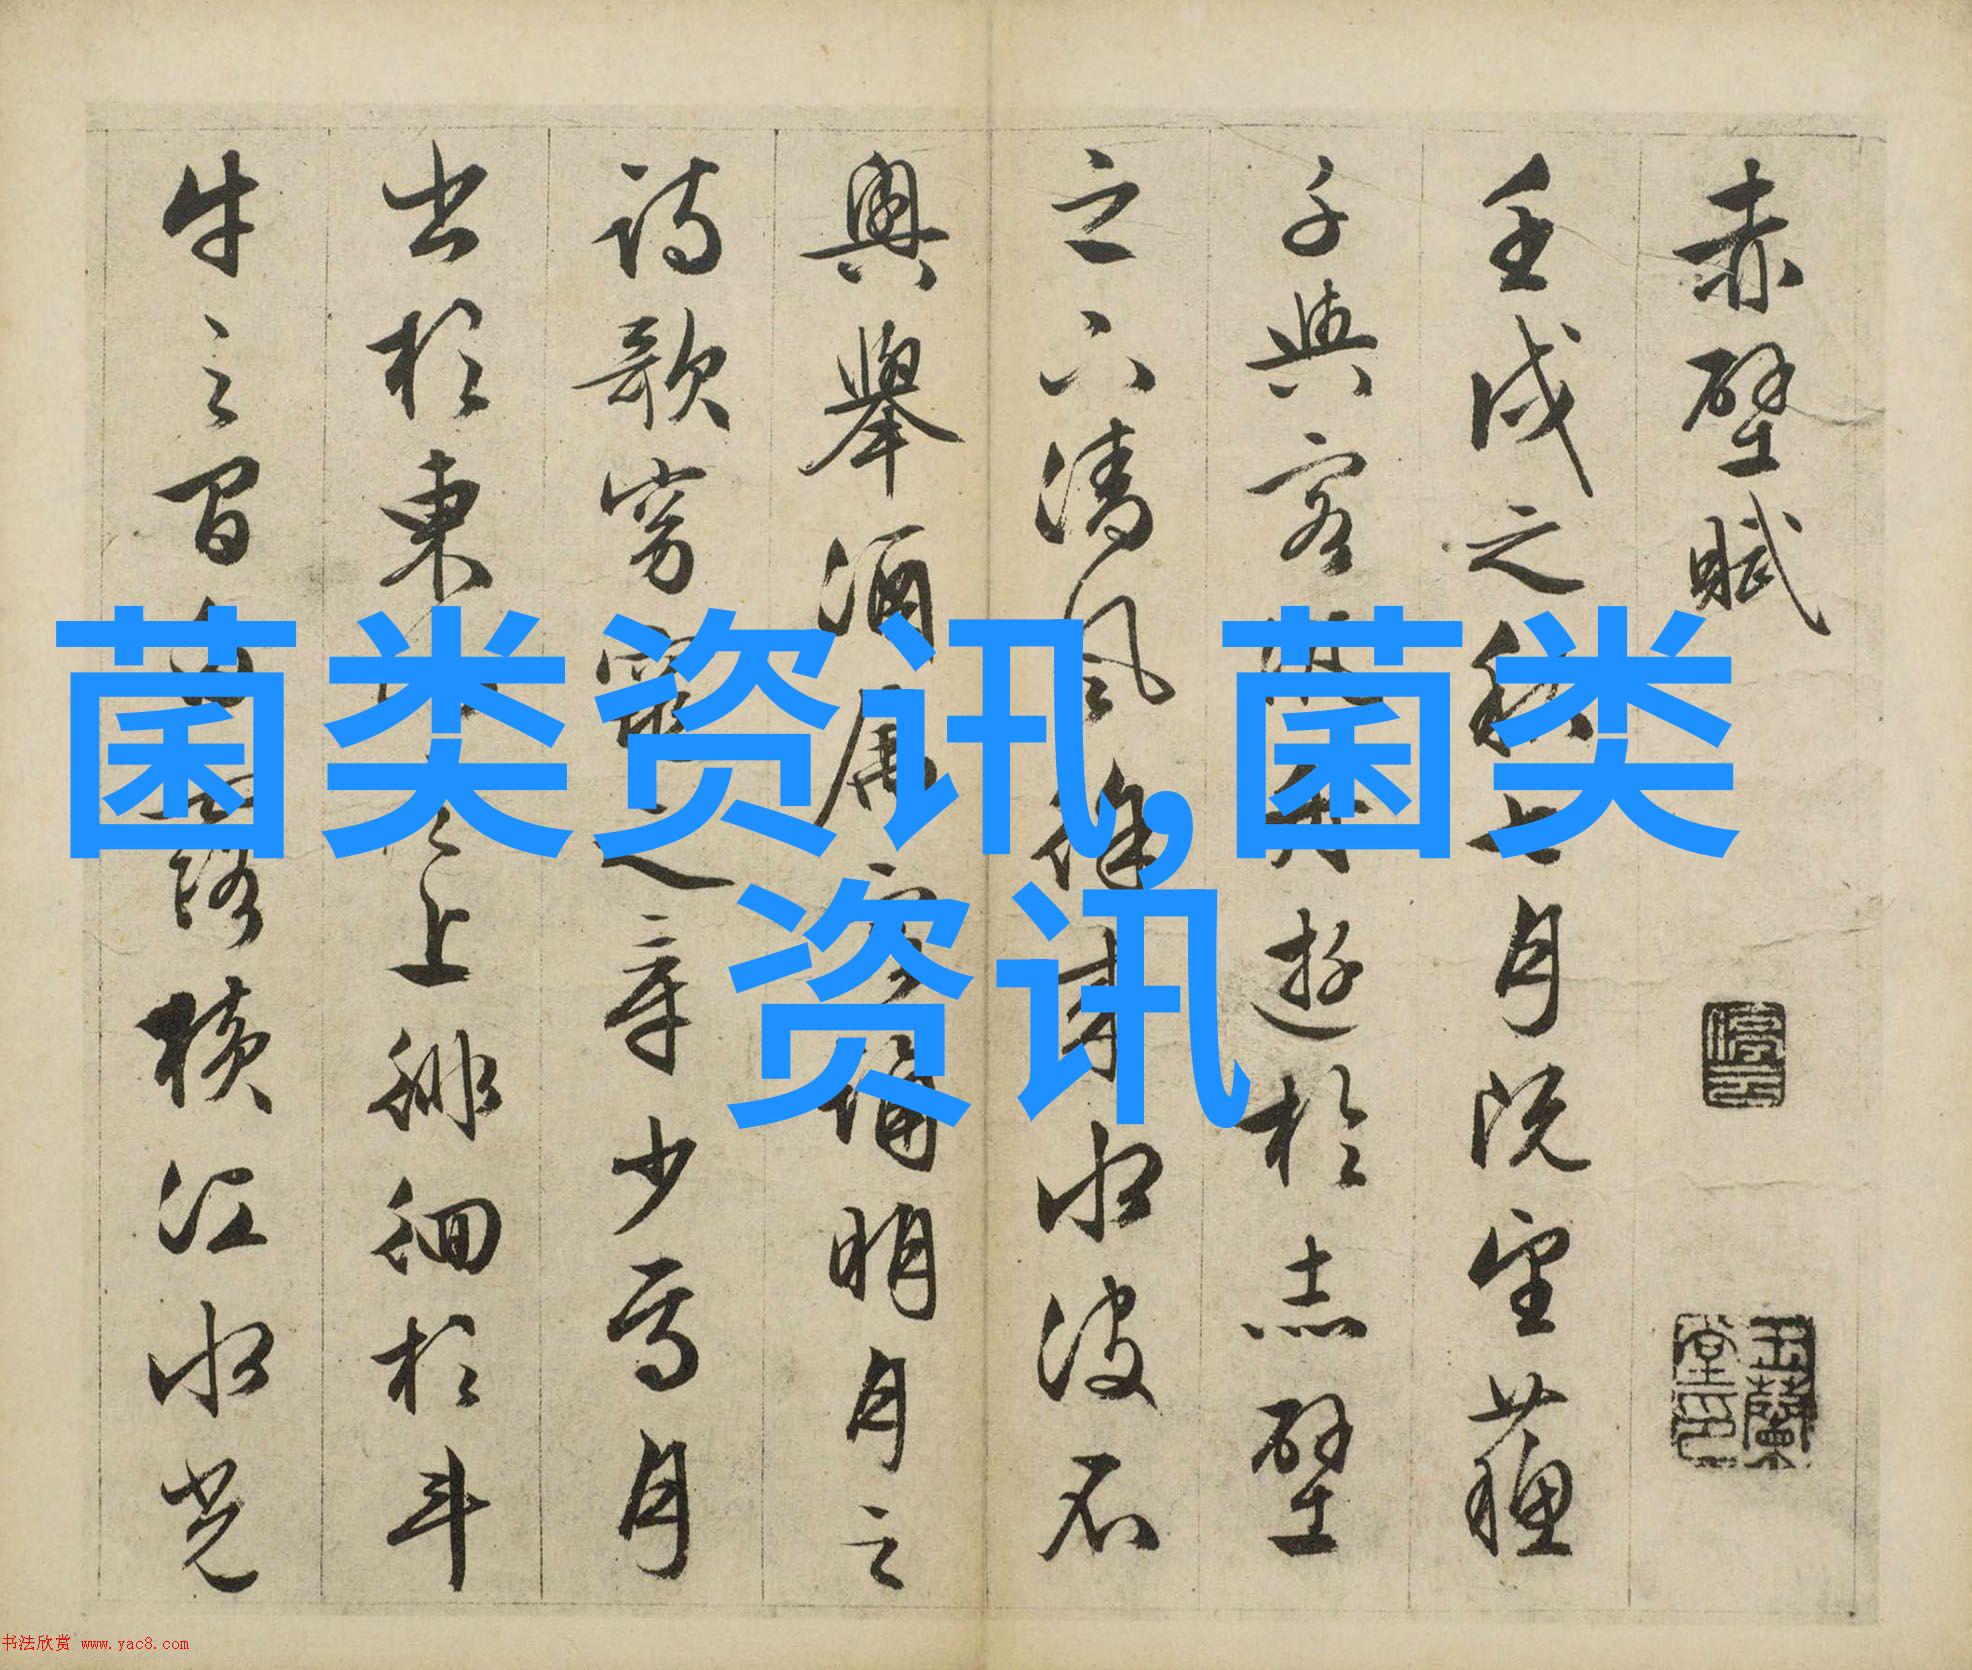 赤壁賦
停雲
玉蘭堂印
壬戌之秋七月既望蘓
子與客泛舟遊於赤壁
之下清風徐來水波不
興舉酒属客誦明月之
詩歌窈窕之章少焉月
出於東山之上徘徊於斗
牛之間白露横江水光
菌类资讯,菌类
资讯
书法欣赏 www.yac8.com